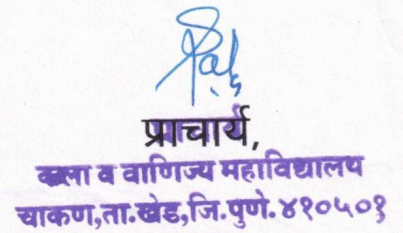 प्राचार्य,
कला व वाणिज्य महाविद्यालय
चाकण,ता.खेड,जि.पुणे.४१०५०१